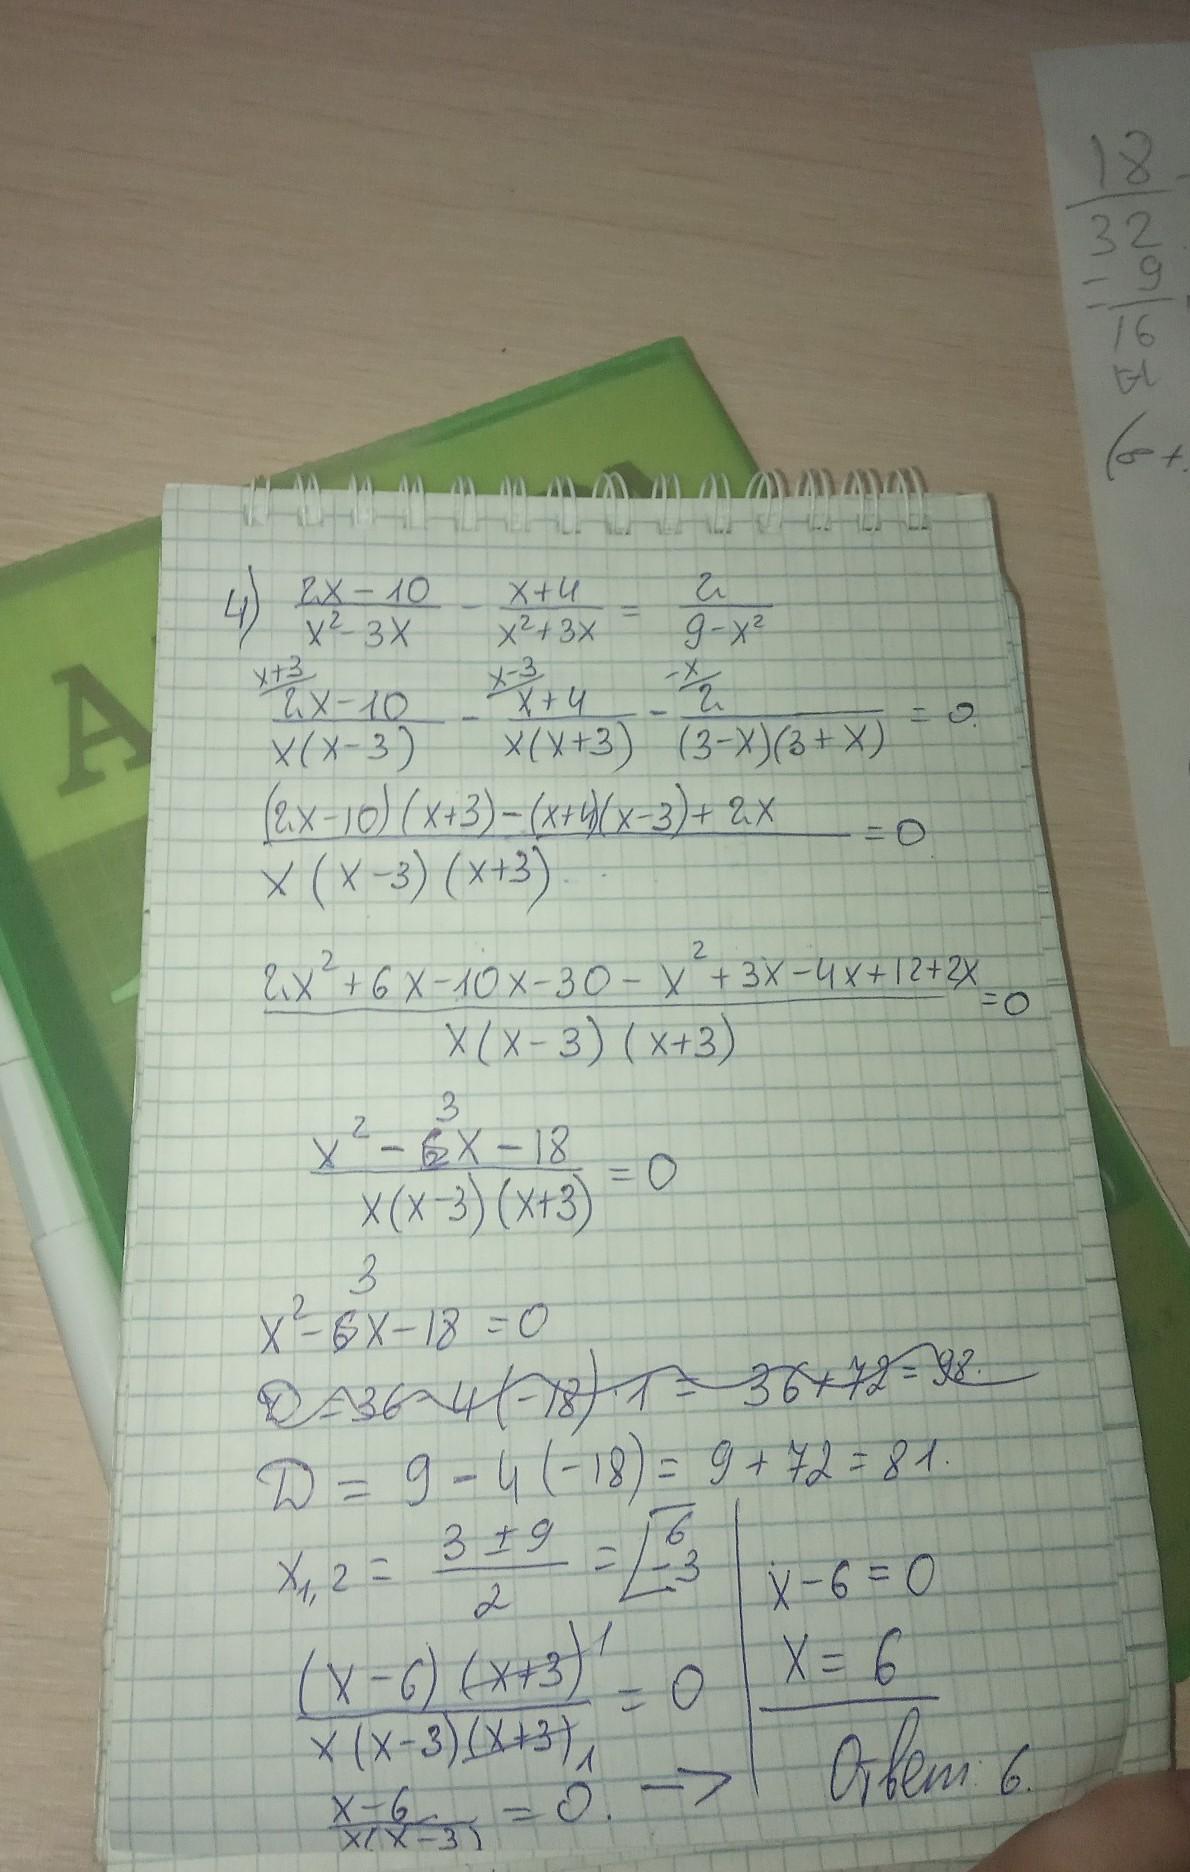 18
32
- 9
16
(6+
A
4) (2x-10)/(x²-3x) - (x+4)/(x²+3x) = 2/(9-x²)
x+3/ (2x-10)/(x(x-3)) - x-3/ (x+4)/(x(x+3)) - -x/ 2/((3-x)(3+x)) = 0.
((2x-10)(x+3)-(x+4)(x-3)+2x)/(x(x-3)(x+3)) = 0
(2x²+6x-10x-30-x²+3x-4x+12+2x)/(x(x-3)(x+3)) = 0
3
(x²-6x-18)/(x(x-3)(x+3)) = 0
3
x²-6x-18 = 0
D = 36-4(-18)·1 = 36+72 = 98.
D = 9-4(-18) = 9+72 = 81.
x1,2 = (3±9)/2 = [6 -3
((x-6)(x+3)¹)/(x(x-3)(x+3)₁) = 0
(x-6)/(x(x-3)) = 0. ->
x-6=0
x=6
Ответ: 6.